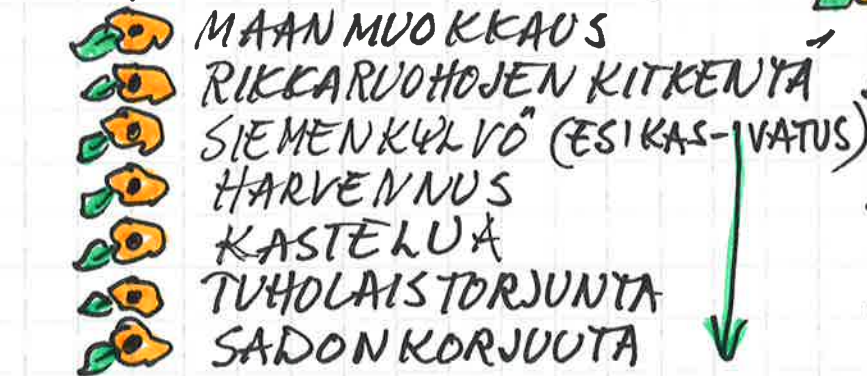 MAANMUOKKAUS
RIKKARUOHOJEN KITKENTÄ
SIEMENKYLVÖ (ESIKAS-VATUS)
HARVENNUS
KASTELUA
TUHOLAISTORJUNTA
SADONKORJUUTA